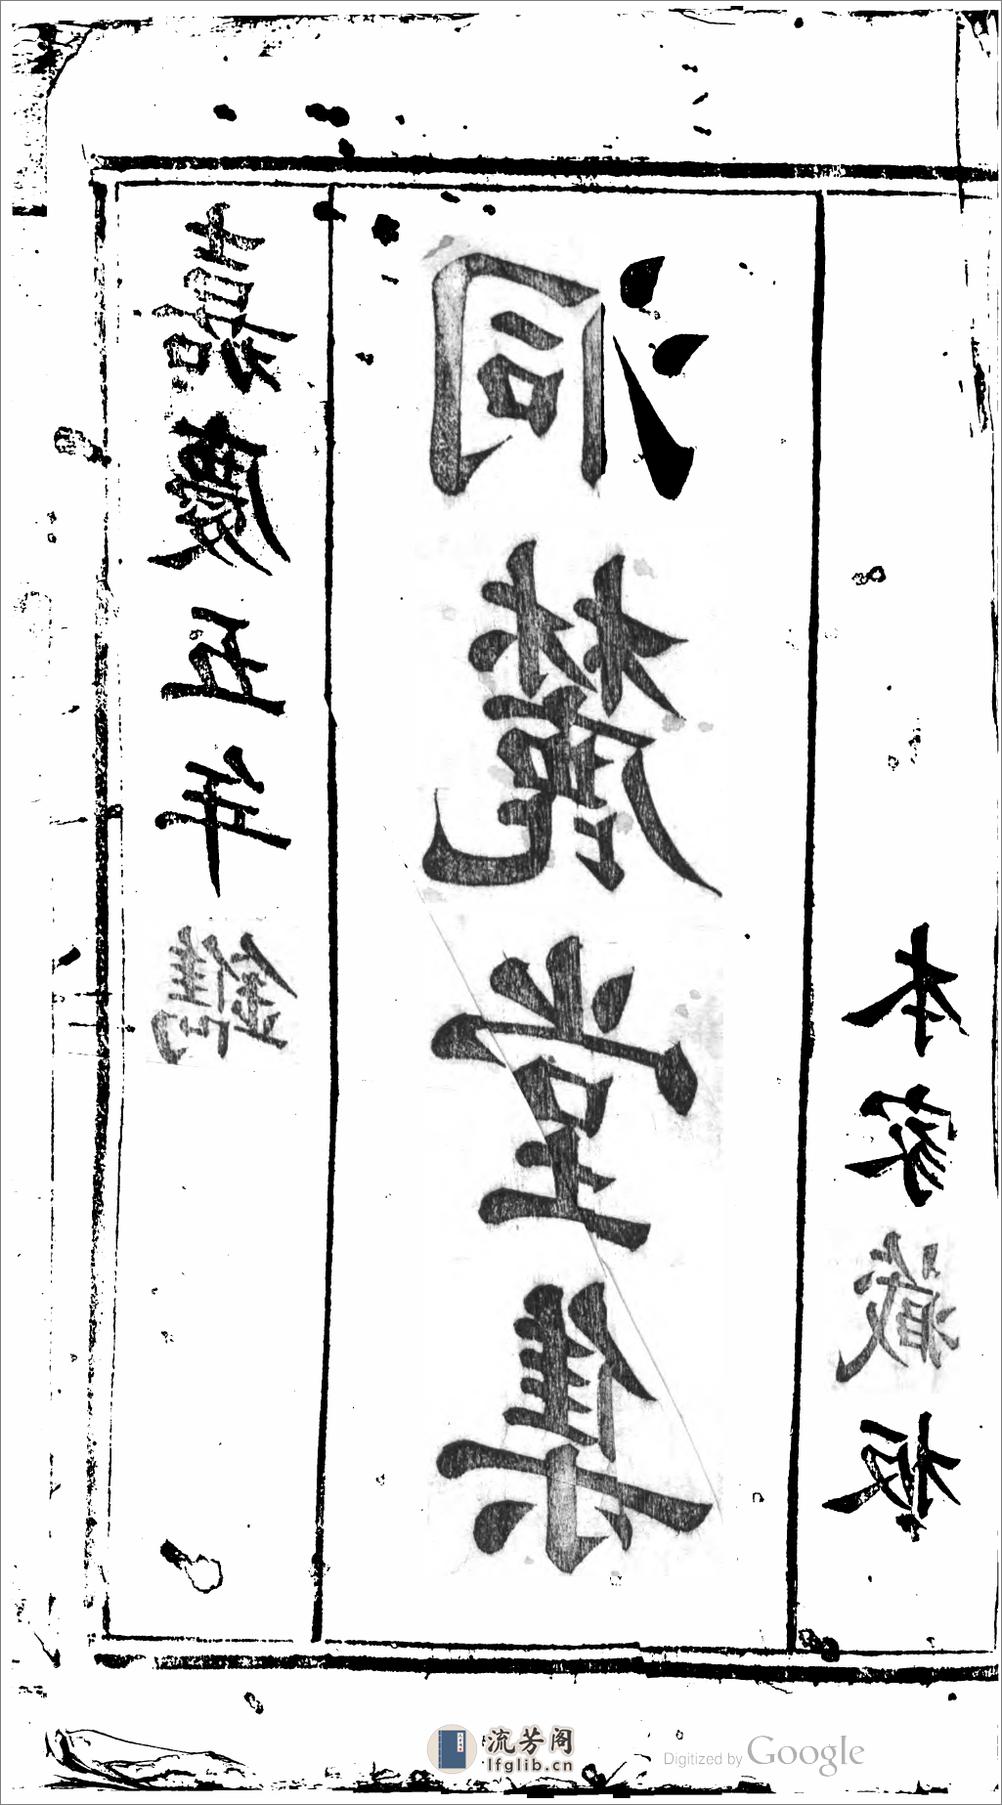 嘉慶五年鐫
洞麓堂集
本家藏板
流芳阁
lfglib.cn
Digitized by Google